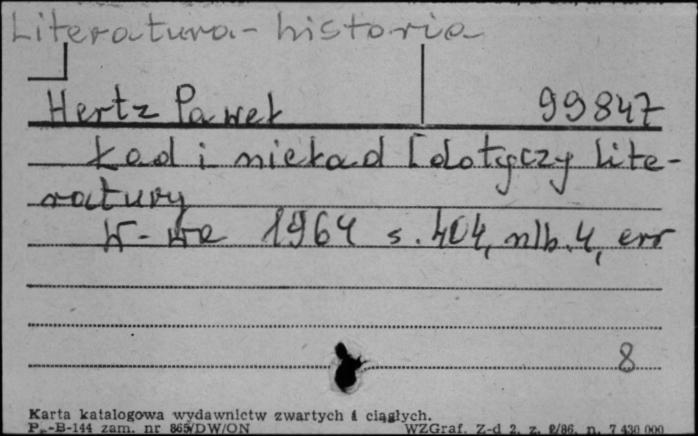 Literatura - historia
Hertz Paweł 99847
Ład i nieład [dotyczy lite-
ratury
W-wa 1964 s. 404, nlb. 4, err
8
Karta katalogowa wydawnictw zwartych i ciągłych.
Pu-B-144 zam. nr 865/DW/ON WZGraf. Z-d 2, z. 2/86, n. 7 430 000